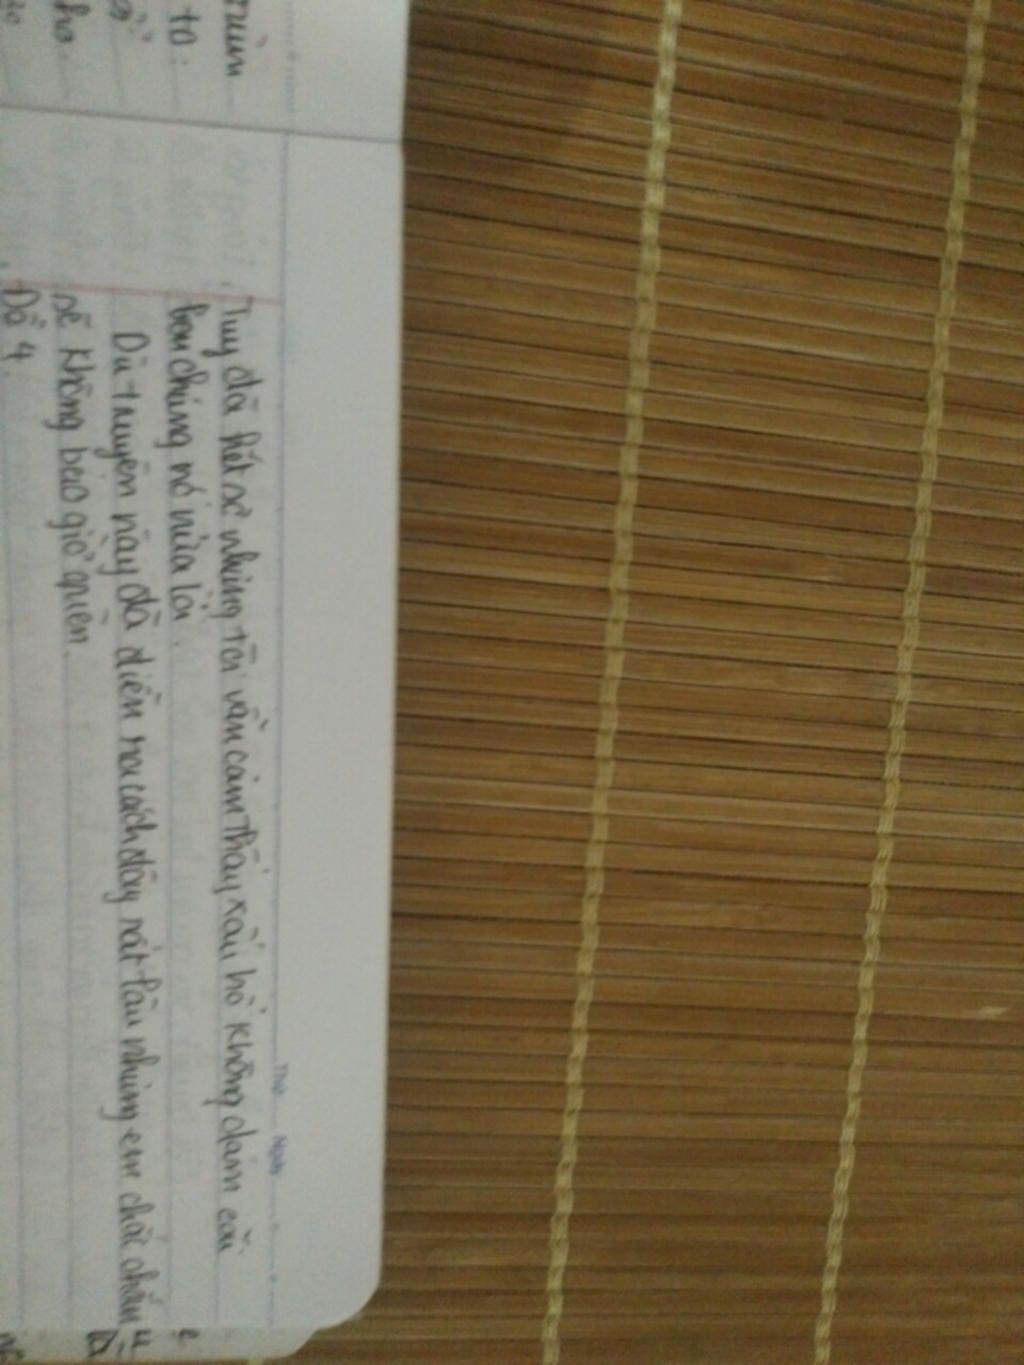 Thứ Ngày
Tuy đã hết sợ nhưng tôi vẫn cảm thấy xấu hổ không dám cãi
bọn chúng nó nữa lời.
Dù truyện này đã diễn ra cách đây rất lâu nhưng em chắc chắn
sẽ không bao giờ quên.
Đề 4
to: